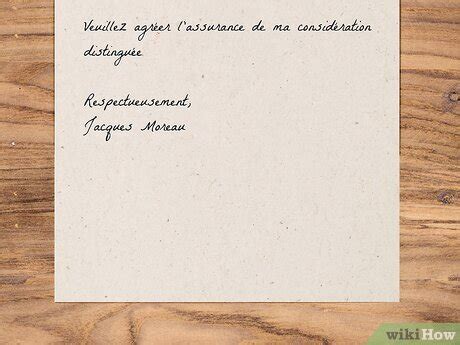 Veuillez agréer l'assurance de ma considération
distinguée
Respectueusement,
Jacques Moreau
wikiHow